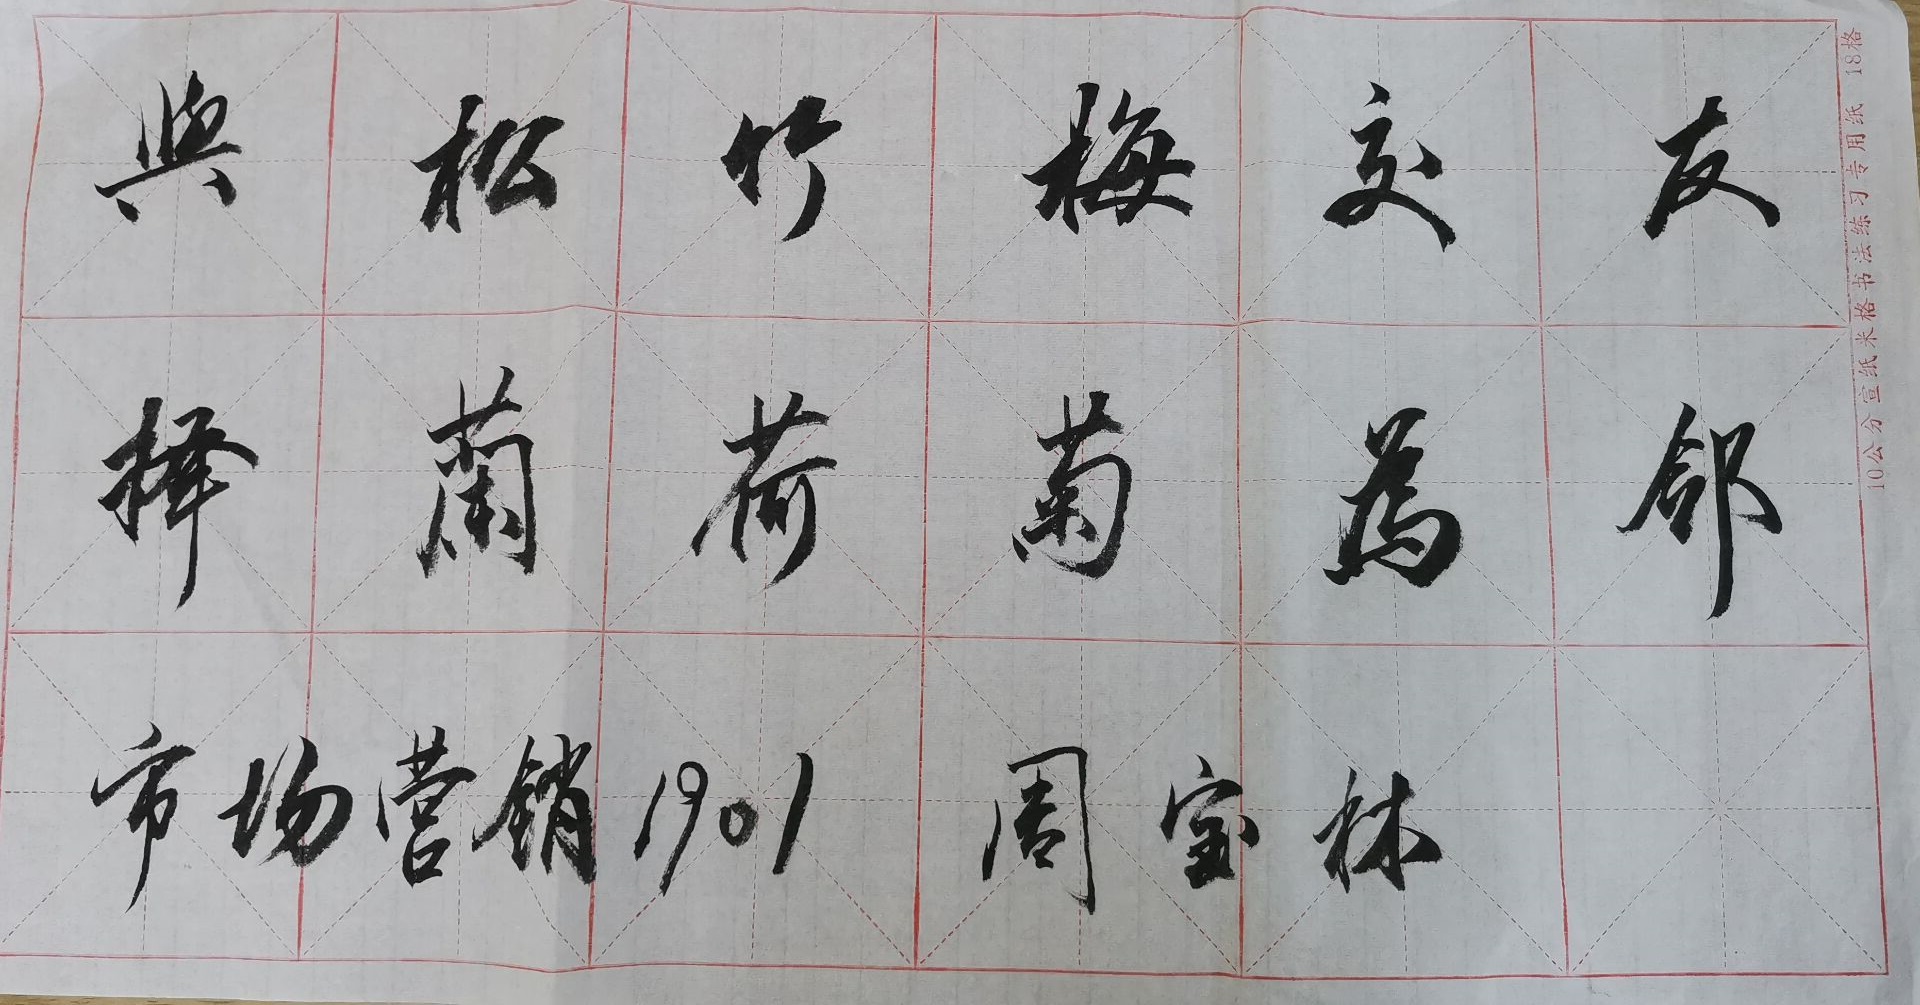 與松竹梅交友
择蘭荷菊為邻
市场营销1901 周宝林
10公分宣纸米格书法练习专用纸 18格